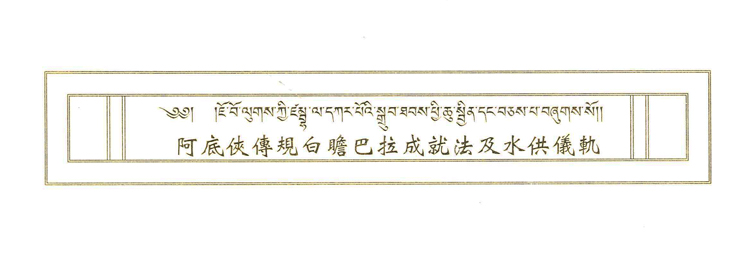 ༄༅། །ཇོ་བོ་ལུགས་ཀྱི་ཛམྦྷ་ལ་དཀར་པོའི་སྒྲུབ་ཐབས་ཕྱི་ཆུ་སྦྱིན་དང་བཅས་པ་བཞུགས་སོ།།
阿底俠傳規白瞻巴拉成就法及水供儀軌